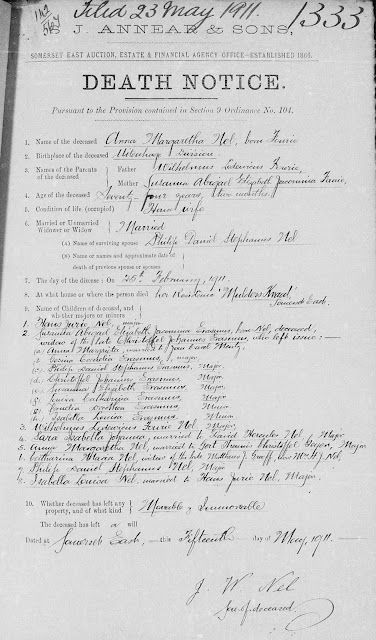 Filed 23 May 1911.
1333
S. J. ANNEAR & SONS,
SOMERSET EAST AUCTION, ESTATE & FINANCIAL AGENCY OFFICE—ESTABLISHED
DEATH NOTICE.
Pursuant to the Provision contained in Section 9 Ordinance No. 104.
1. Name of the deceased Anna Margaretha Nel, born Fourie
2. Birthplace of the deceased Uitenhage Division
3. Names of the Parents of the deceased Father Wilhelmus Lodevicus Fourie
Mother Susanna Abigael Elizabeth Jacomina Fourie,
4. Age of the deceased Seventy-four years, two months
5. Condition of life (occupied) House wife
6. Married or Unmarried Widower or Widow Married
(a) Name of surviving spouse Philip Daniel Stephanus Nel
(b) Name or names and approximate date of
death of previous spouse or spouses
7. The day of the disease: On 25th February, 1911
8. At what house or where the person died her Residence
Somerset East.
9. Name of Children of deceased, and whether majors or minors
1. Hans Jurie Nel, major
2. Susanna Abigael Elizabeth Jacomina Erasmus, born Nel, deceased,
widow of the late Christoffel Johannes Erasmus, who left issue:-
(a) Anna Margrieta, married to
(b) Cecilia Erasmus, major
(c) Philip Daniel Stephanus Erasmus, Major
(d) Christoffel Johannes Erasmus Major
(e) Susanna Elizabeth Erasmus Major
Catharina Erasmus Major
Dorothea Erasmus
(h) Isabella Louisa Erasmus Minor
3. Wilhelmus Lodevicus Fourie Nel Major.
4. Sara Isabella Johanna, married to David Hercules Nel, Major
5. Anna Margaretha Nel, married to Gert Francois Greyling, Major.
6. Catharina Maria Nel, widow of the late Matthews J. Greeff, Nel,
7. Philip Daniel Stephanus Nel, Major
8. Isabella Louisa Nel, married to Hans Jurie Nel, Major.
10. Whether deceased has left any property, and of what kind Movable & Immovable
The deceased has left a will
Dated at Somerset East, this Fifteenth day of May, 1911.
J. W. Nel
Son of deceased.